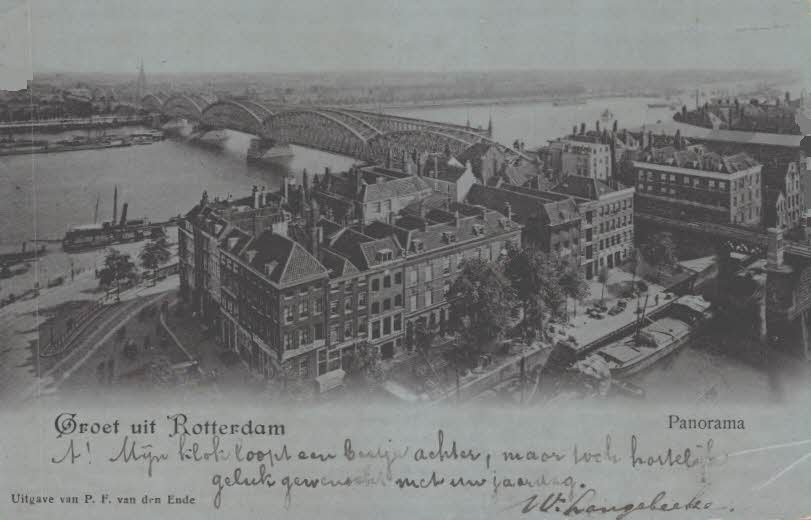 Groet uit Rotterdam
Panorama
A! Mijn klok loopt een beetje achter, maar toch hartelijk
geluk gewenscht met uw jaardag.
W. Langebeeke.
Uitgave van P. F. van den Ende